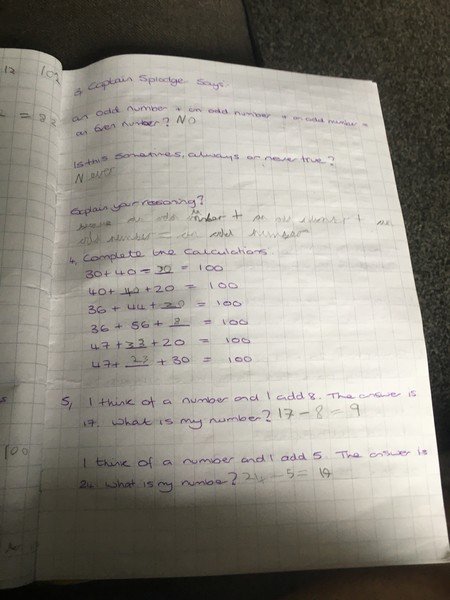 12 102
3 Captain Splodge Says.
an odd number + an odd number + an odd number =
= 82
an Even number? NO
Is this Sometimes, always or never true?
Never
Explain your reasoning?
an odd number + an odd number + an
odd number = an odd number
4, Complete the Calculations.
30 + 40 = 30 = 100
40 + 40 + 20 = 100
36 + 44 + 20 = 100
36 + 56 + 8 = 100
47 + 33 + 20 = 100
47 + 23 + 30 = 100
5, I think of a number and I add 8. The answer is
17. What is my number? 17 - 8 = 9
100
I think of a number and I add 5. The answer is
24. What is my number? 24 - 5 = 19